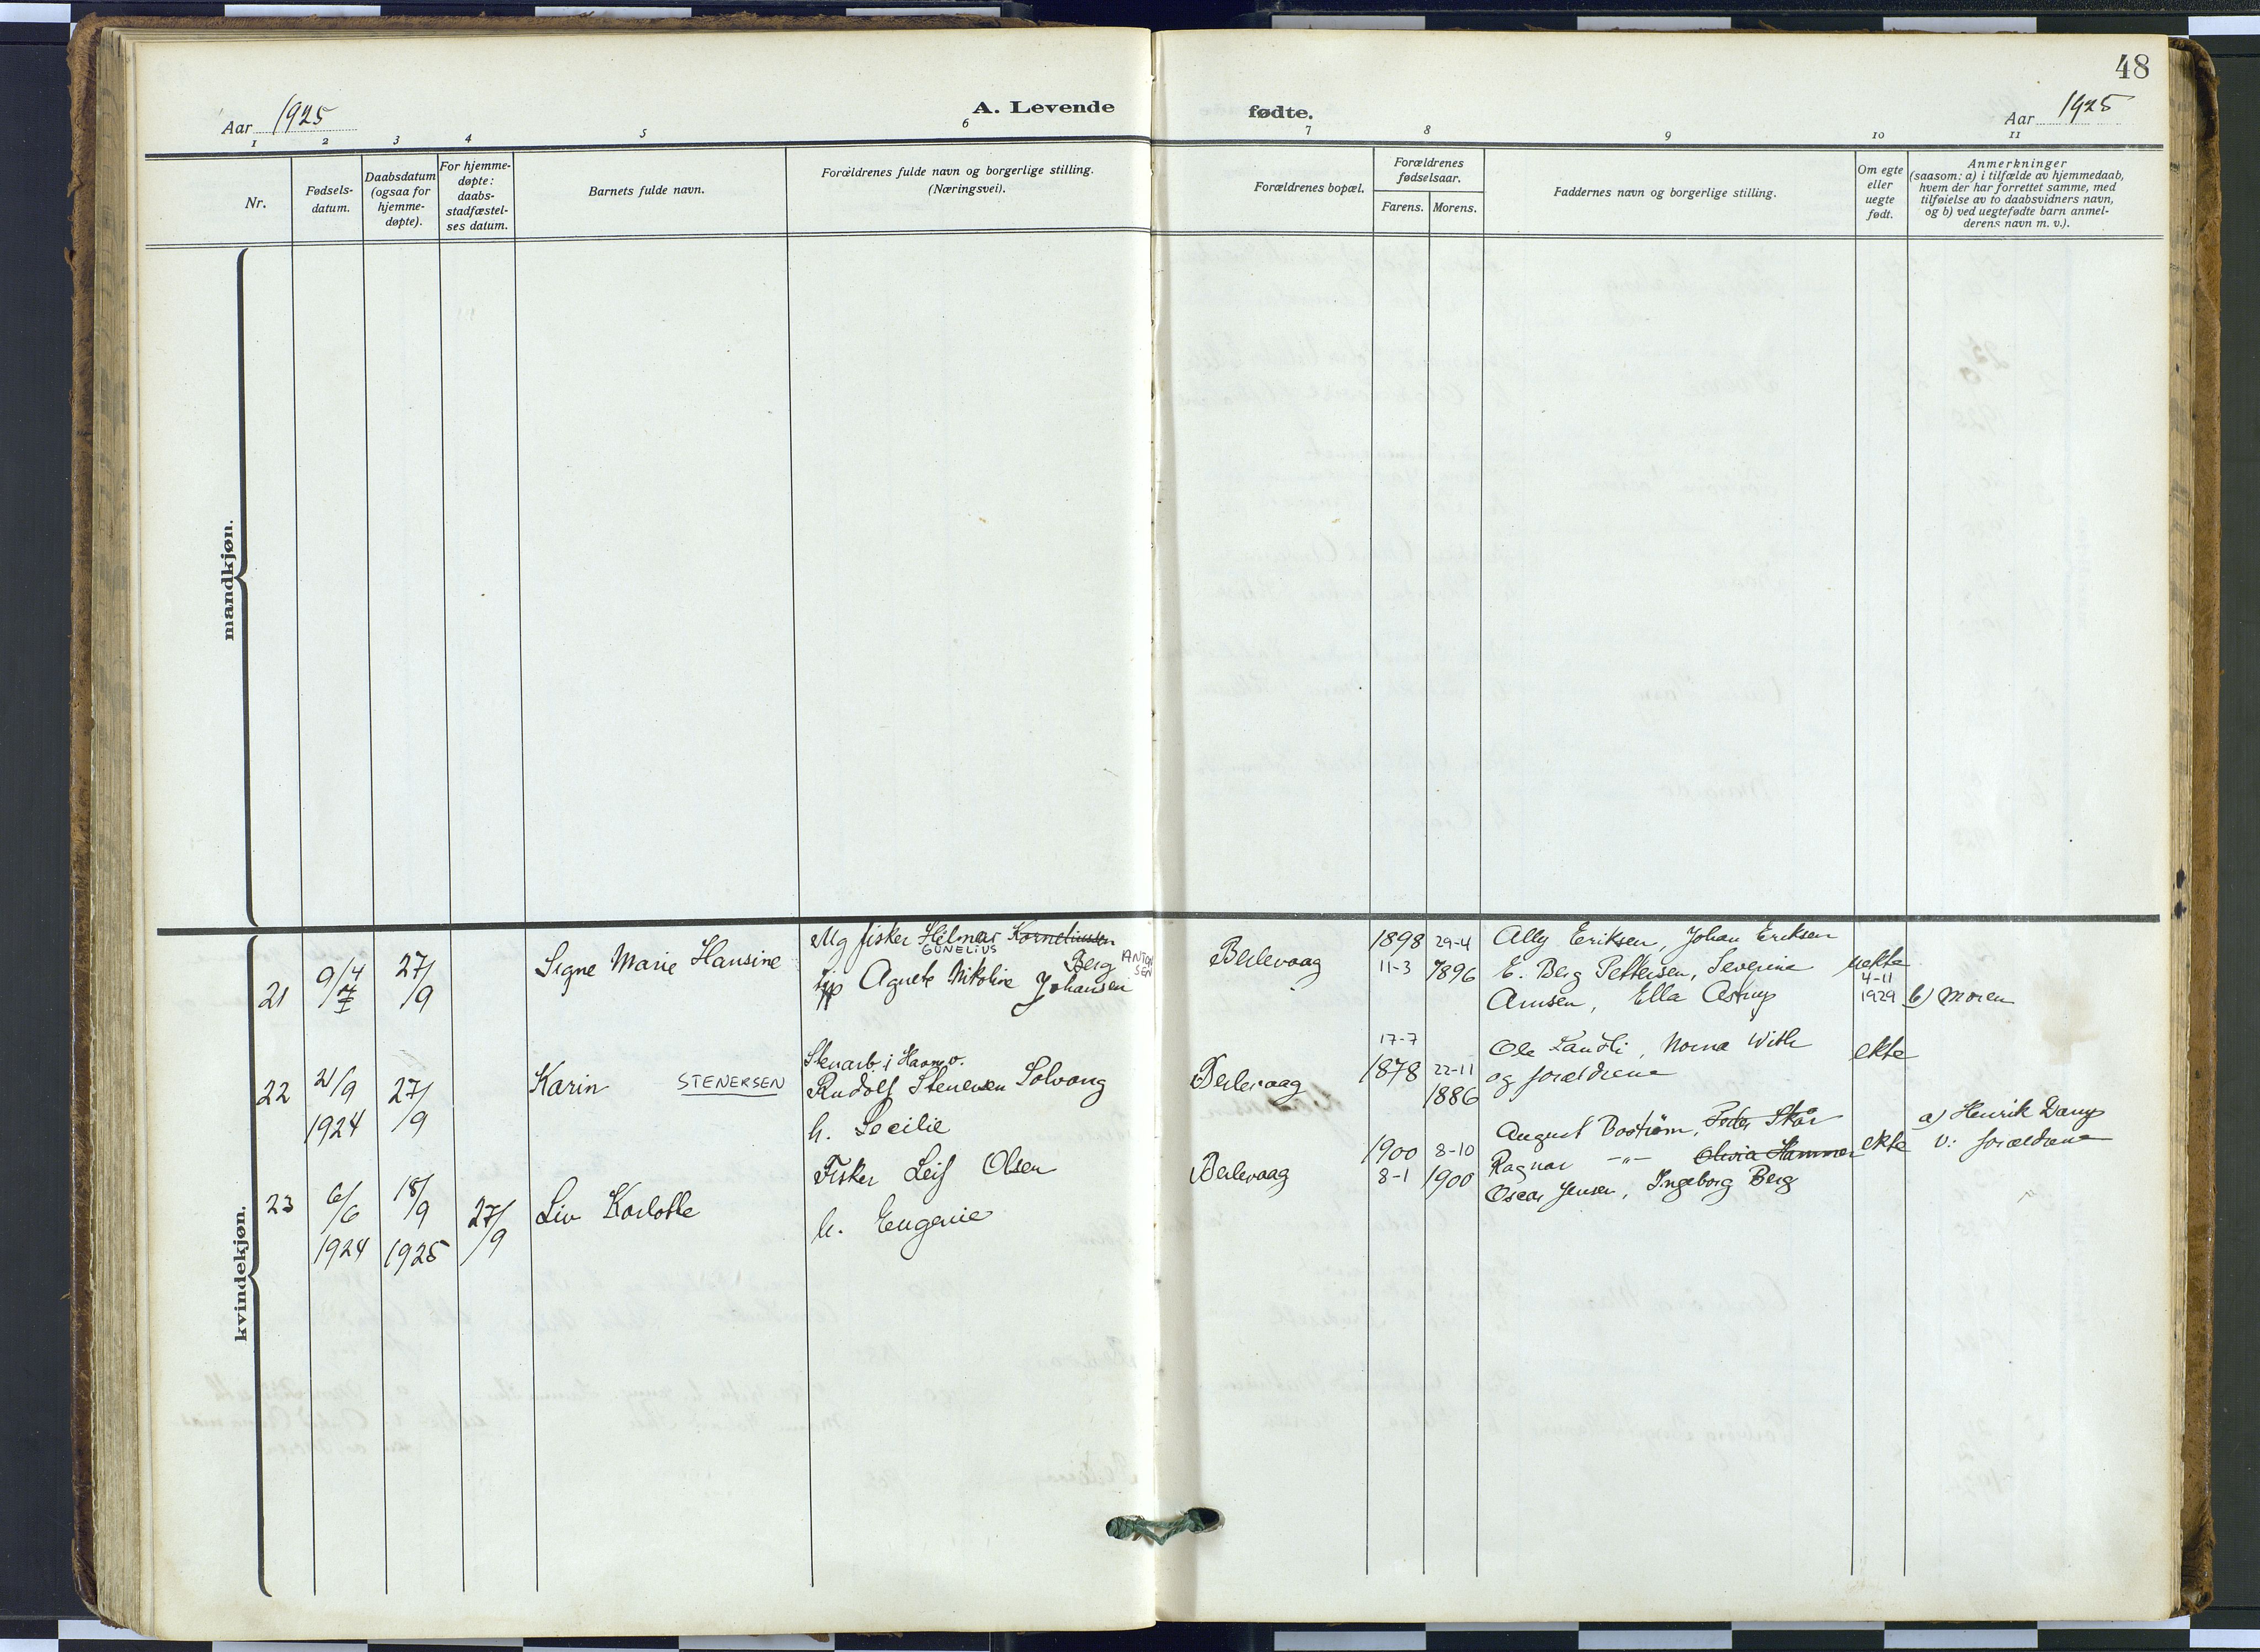 48
Aar 1925
A. Levende
fødte.
Aar 1925
1 2 3 4 5 6 7 8 9 10 11
Nr.
Fødsels-
datum.
Daabsdatum
(ogsaa for
hjemme-
døpte).
For hjemme-
døpte:
daabs-
stadfæstel-
ses datum.
Barnets fulde navn.
Forældrenes fulde navn og borgerlige stilling.
(Næringsvei).
Forældrenes bopæl.
Forældrenes
fødselsaar.
Farens.
Morens.
Faddernes navn og borgerlige stilling.
Om egte
eller
uegte
født.
Anmerkninger
(saasom: a) i tilfælde av hjemmedaab,
hvem der har forrettet samme, med
tilføielse av to daabsvidners navn,
og b) ved uegtefødte barn anmel-
derens navn m. v.).
mandkjøn.
kvindekjøn.
21
9/4
27/9
Signe Marie Hansine
Ug fisker Hilmar Korneliussen
GUNELIUS
Berg
ANTON
SEN
Agnete Nikoline Johansen
Berlevaag
1898
11-3
29-4
1896
Ally Eriksen, Johan Eriksen
E. Berg Pettersen, Severine
Arnsen, Ella Astrup
uekte
4-11
1929
b) Moren
22
21/9
1924
27/9
Karin STENERSEN
Stenarb. i Havnev.
Rudolf Stenersen Solvang
h. Secilie
Berlevaag
17-7
1878
22-11
1886
Ole Landli, Norna With
og forældrene
ekte
23
6/6
1924
18/9
1925
27/9
Liv Karlotte
Fisker Leif Olsen
h. Eugenie
Berlevaag
1900
8-1
8-10
1900
August Boström, Peder Skår
Ragnar -"- Olivia Hammer
Oscar Jensen, Ingeborg Berg
ekte
a) Henrik Dany
v: forældrene